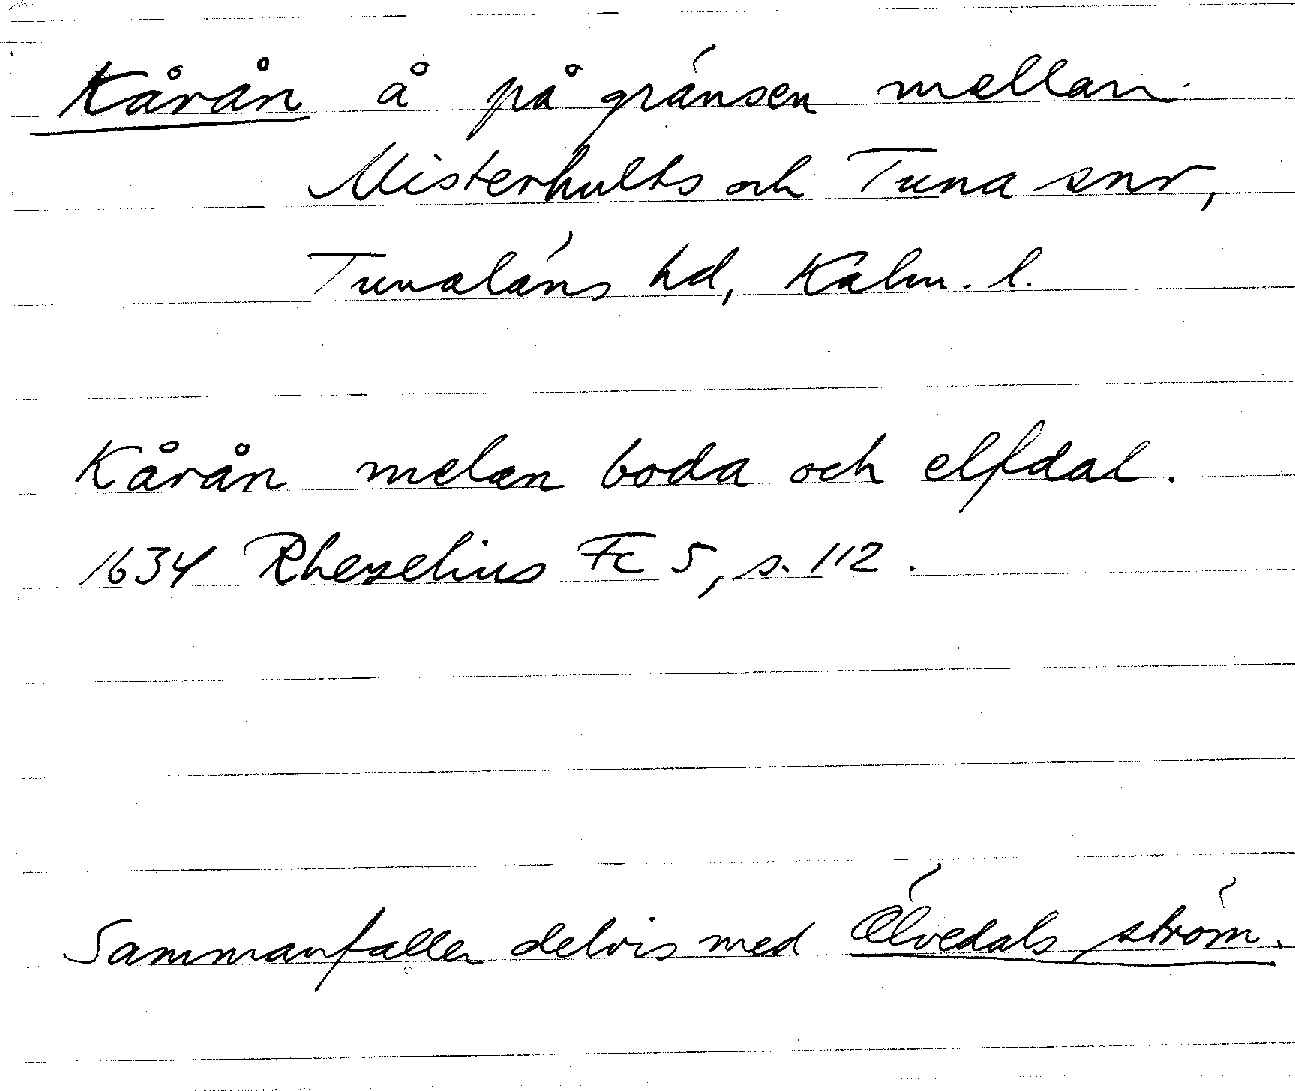 Kårån å på gränsen mellan
Misterhults och Tuna snr,
Tunaläns hd, Kalm. l.
Kårån melan boda och elfdal.
1634 Rhezelius Fc 5, s. 112.
Sammanfaller delvis med Älvedals ström.